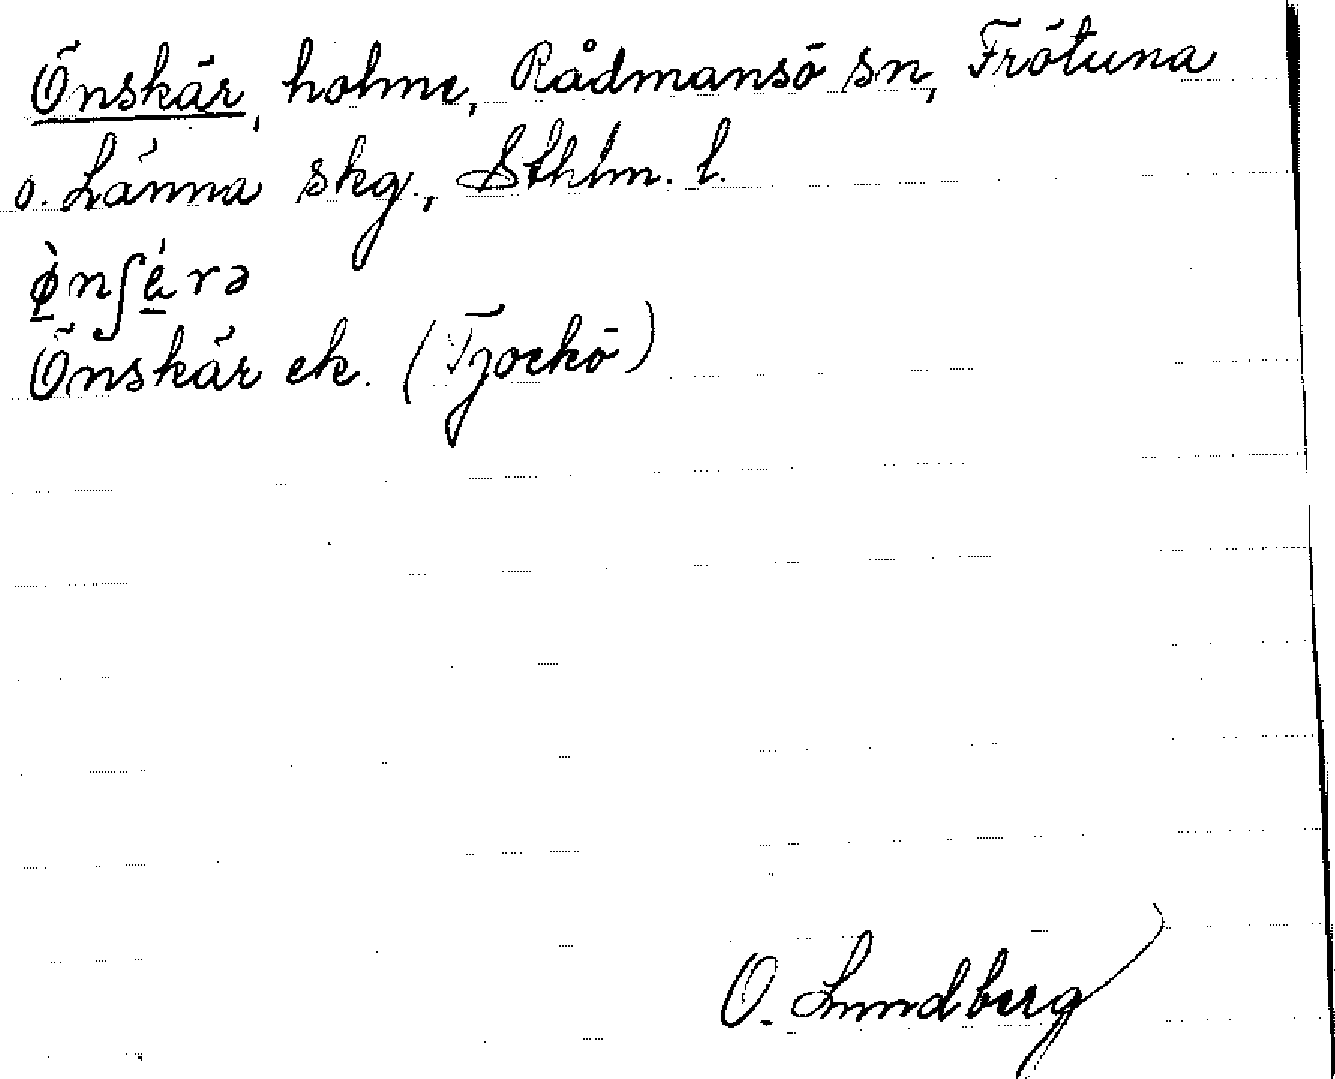 Önskär, holme, Rådmansö sn, Frötuna
o. Länna skg., Sthlm. l.
ø̀nʃérə
Önskär ek. (Tjockö)
O. Lundberg